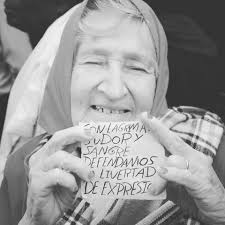 CON LAGRIMAS
SUDOR Y
SANGRE
DEFENDAMOS
LIVERTAD
DE EXPRESIO